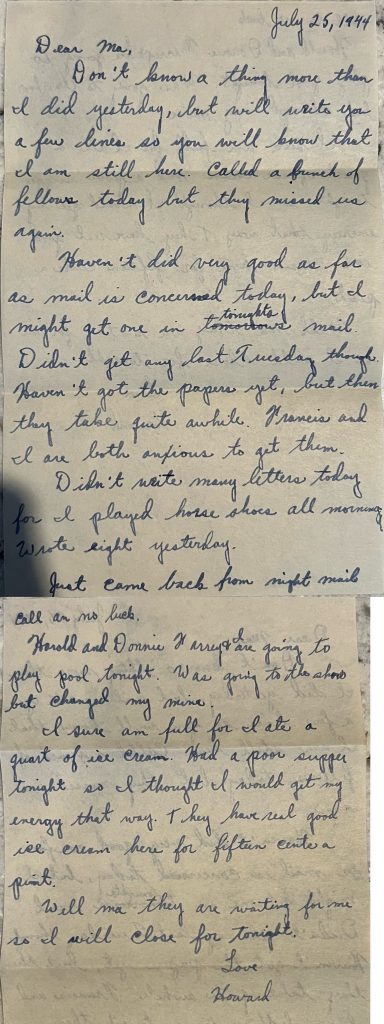 July 25, 1944
Dear Ma,
Don't know a thing more than
I did yesterday, but will write you
a few lines so you will know that
I am still here. Called a bunch of
fellows today but they missed us
again.
Haven't did very good as far
as mail is concerned today, but I
might get one in tonights mail.
Didn't get any last Tuesday though.
Haven't got the papers yet, but then
they take quite awhile. Francis and
I are both anxious to get them.
Didn't write many letters today
for I played horse shoes all morning
Wrote eight yesterday.
Just came back from night mail
call an no luck.
Harold and Donnie Harvey & I are going to
play pool tonight. Was going to the show
but changed my mine.
I sure am full for I ate a
quart of ice cream. Had a poor supper
tonight so I thought I would get my
energy that way. They have real good
ice cream here for fifteen cents a
pint.
Well ma they are waiting for me
so I will close for tonight.
Love
Howard